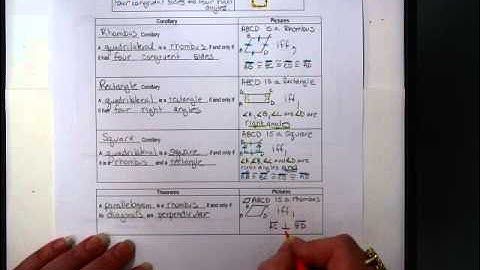 four congruent sides and four right
angles.
Corollary Pictures
Rhombus Corollary
A quadrilateral is a rhombus if and only if
it has four congruent sides
ABCD is a Rhombus
iff,
AB ≅ BC ≅ CD ≅ AD
Rectangle Corollary
A quadrilateral is a rectangle if and only if
it has four right angles
ABCD is a Rectangle
iff,
∠A, ∠B, ∠C and ∠D are
right angles
Square Corollary
A quadrilateral is a square if and only if
it is a rhombus and a rectangle
ABCD is a Square
iff,
∠A, ∠B, ∠C and ∠D are
right angles and
Theorems Pictures
A parallelogram is a rhombus if and only if
its diagonals are perpendicular
▱ABCD is a rhombus
iff,
AC ⊥ BD